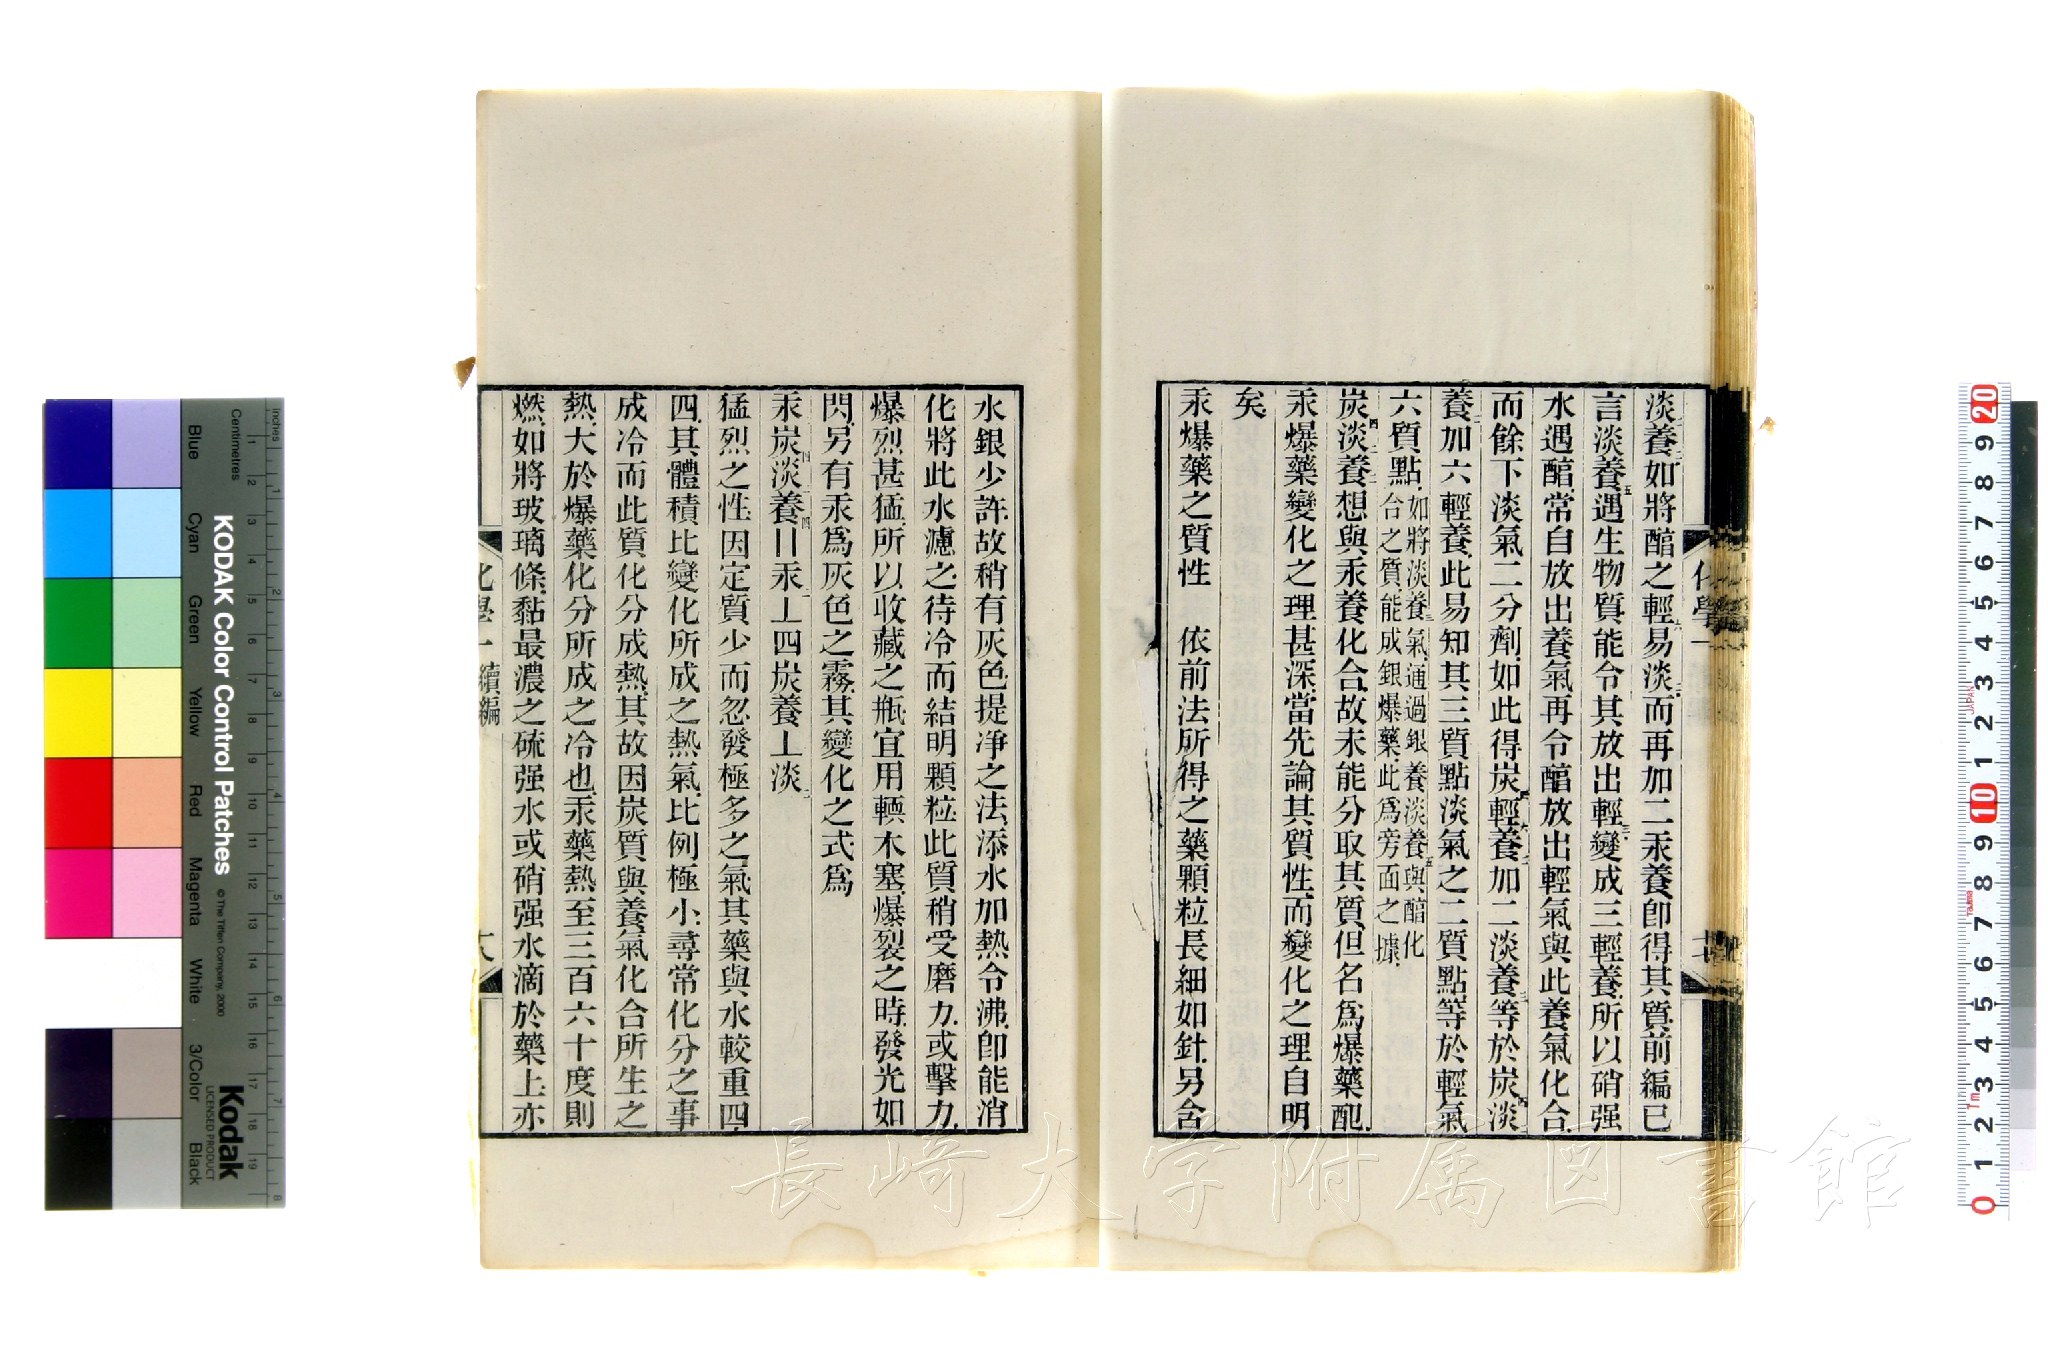 淡養如將醕之輕易淡而再加二汞養卽得其質前編已
言淡養五遇生物質能令其放出輕變成三輕養所以硝强
水遇醕常自放出養氣再令醕放出輕氣與此養氣化合
而餘下淡氣二分劑如此得炭輕養加二淡養等於炭淡
養加六輕養此易知其三質點淡氣之二質點等於輕氣
六質點如將淡養氣通過銀養淡養五與醕化
合之質能成銀爆藥此爲旁面之據
炭四淡二養二想與汞養化合故未能分取其質但名爲爆藥配
汞爆藥變化之理甚深當先論其質性而變化之理自明
矣
汞爆藥之質性 依前法所得之藥顆粒長細如針另含
化學一
十七
水銀少許故稍有灰色提淨之法添水加熱令沸卽能消
化將此水濾之待冷而結明顆粒此質稍受磨力或擊力
爆烈甚猛所以收藏之瓶宜用輭木塞爆裂之時發光如
閃另有汞爲灰色之霧其變化之式爲
汞二炭四淡二養四〢汞二⊥四炭養⊥淡二
猛烈之性因定質少而忽發極多之氣其藥與水較重四
四其體積比變化所成之熱氣比例極小尋常化分之事
成冷而此質化分成熱其故因炭質與養氣化合所生之
熱大於爆藥化分所成之冷也汞藥熱至三百六十度則
燃如將玻璃條黏最濃之硫强水或硝强水滴於藥上亦
化學一 續編
十八
長崎大学附属図書館
KODAK Color Control Patches
© The Tiffen Company, 2000
Kodak
LICENSED PRODUCT
Blue Cyan Green Yellow Red Magenta White 3/Color Black
Inches
Centimetres
JAPAN